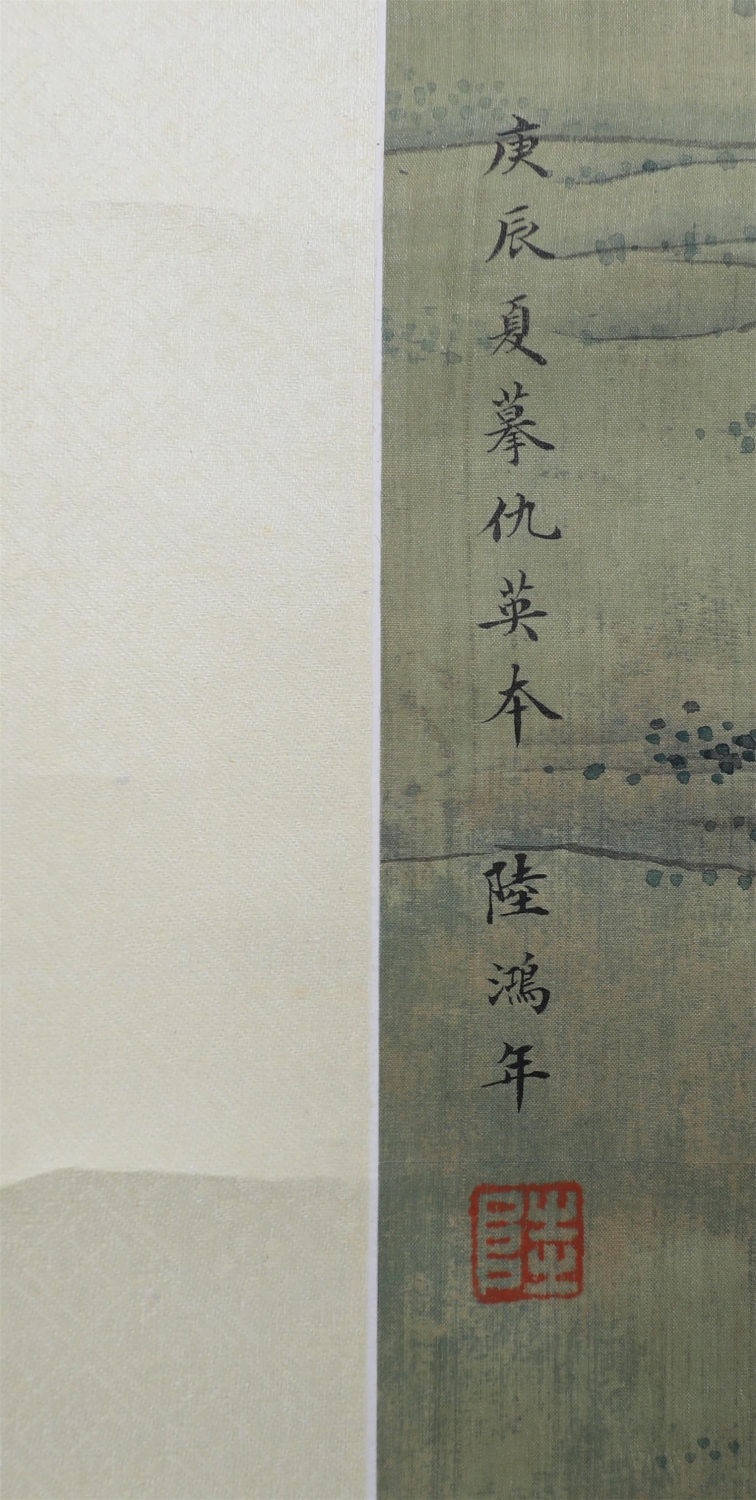 庚辰夏摹仇英本 陸鴻年
陸